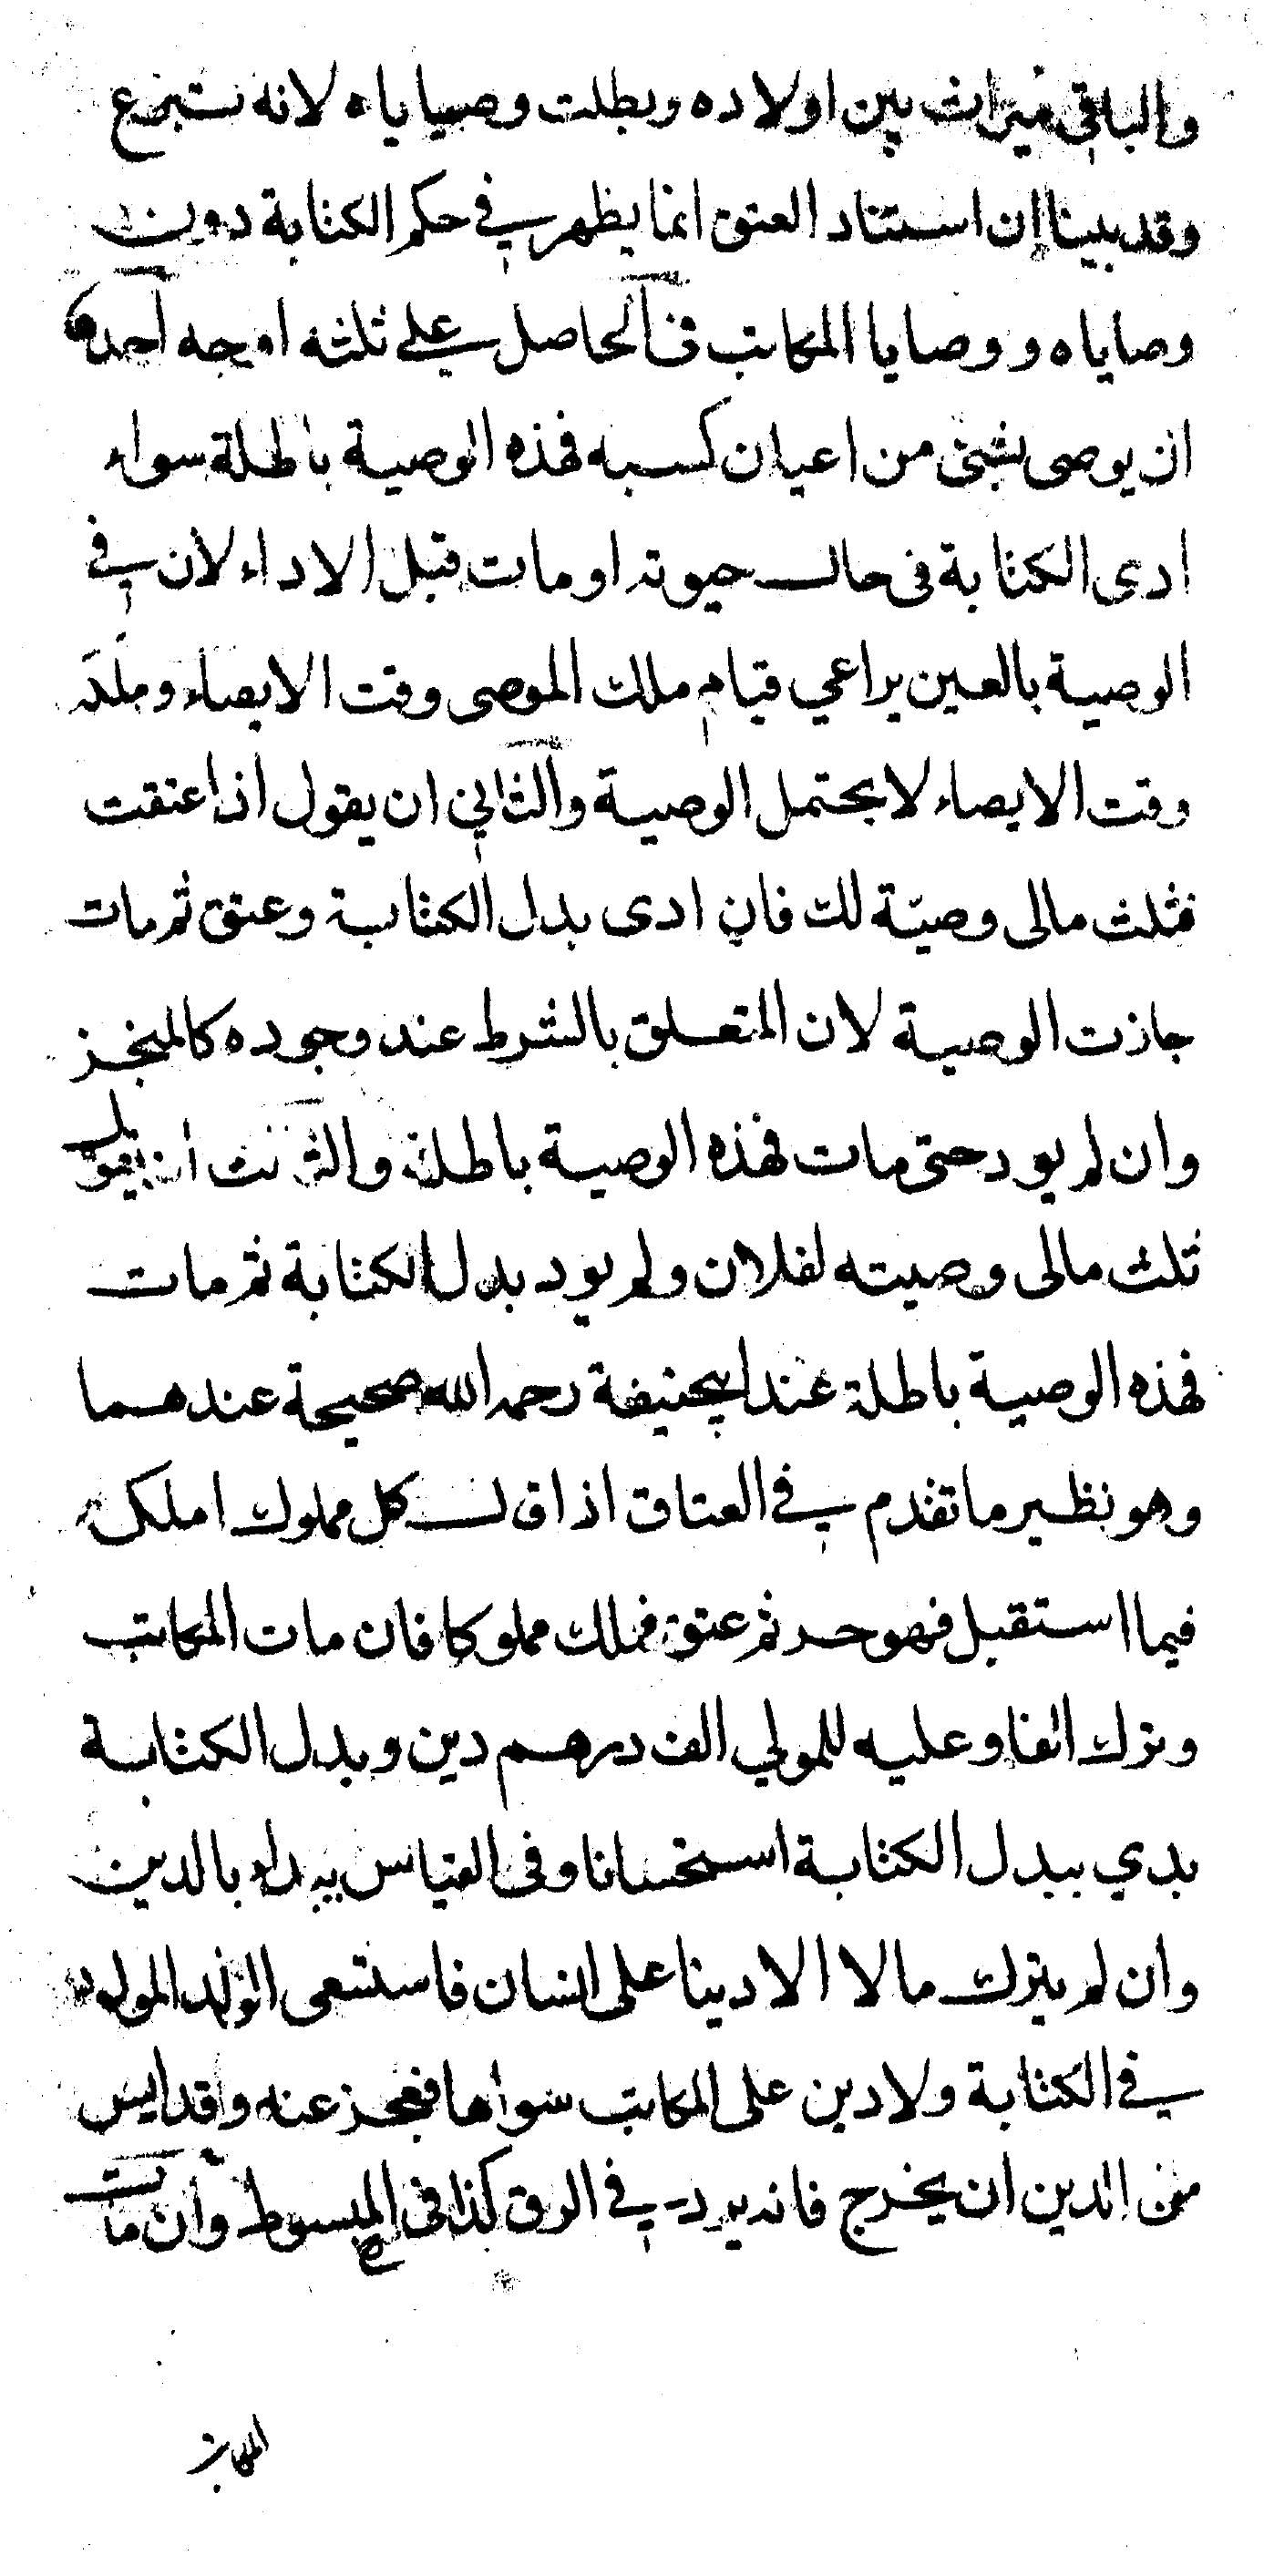 والباقي ميراث بين اولاده وبطلت وصياياه لانه تبرع
وقد بينا ان استناد العتق انما يظهر في حكم الكتابة دون
وصاياه و وصايا المكاتب في الحاصل علي ثلثه اوجه احدها
ان يوصى بشئ من اعيان كسبه فهذه الوصية باطلة سواء
ادى الكتابة فى حال حيوته او مات قبل الاداء لان في
الوصية بالعين يراعي قيام ملك الموصى وقت الايصاء وملكه
وقت الايصاء لا يحتمل الوصية والثاني ان يقول اذا عتقت
فثلث مالى وصيّة لك فان ادى بدل الكتابة وعتق ثم مات
جازت الوصية لان المتعلق بالشرط عند وجوده كالمنجز
وان لم يود حتى مات فهذه الوصية باطلة والثالث ان يقول
ثلث مالى وصيته لفلان ولم يود بدل الكتابة ثم مات
فهذه الوصية باطلة عند ابيحنيفة رحمه الله صحيحة عندهما
وهو نظير ما تقدم في العتاق اذا قال كل مملوك املكه
فيما استقبل فهو حر ثم عتق فملك مملوكا فان مات المكاتب
وترك الفا وعليه للمولي الف درهم دين وبدل الكتابة
بدي ببدل الكتابة استحسانا وفى القياس يبداء بالدين
وان لم يترك مالا الا دينا على انسان فاستسعى الولد المولود
في الكتابة ولا دين على المكاتب سواها فعجز عنه وقد ايس
من الدين ان يخرج فانه يرد في الرق كذا فى المبسوط وان مات
المكاتب